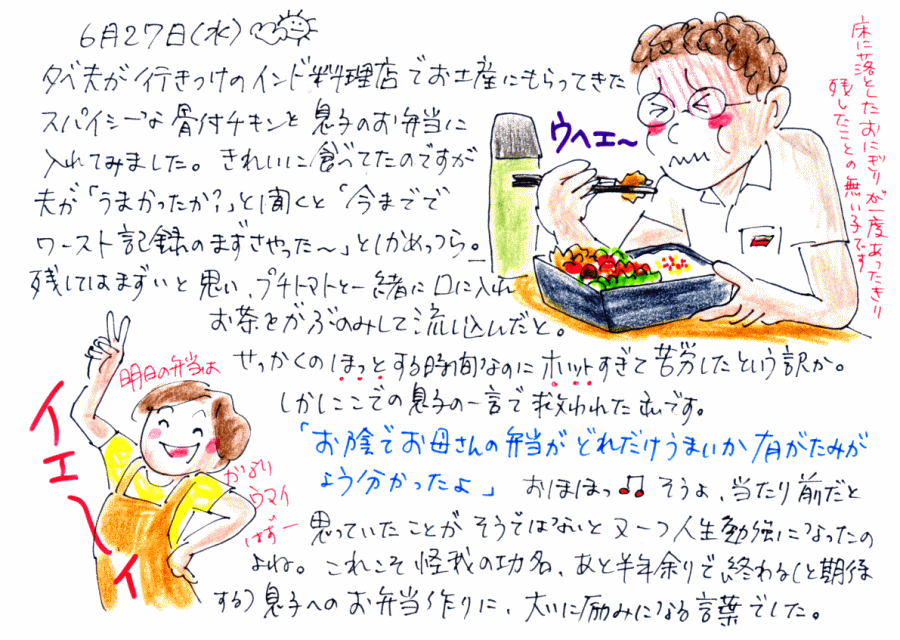 6月27日(水)
夕べ夫が行きつけのインド料理店でお土産にもらってきた
スパイシーな骨付チキンを息子のお弁当に
入れてみました。きれいに食べてたのですが
夫が「うまかったか?」と聞くと「今までで
ワースト記録のまずさやった〜」としかめっつら。
残してはまずいと思い、プチトマトと一緒に口に入れ
お茶をがぶのみして流し込んだと。
せっかくのほっとする時間なのにホットすぎて苦労したという訳か。
しかしここでの息子の一言で救われた私です。
「お陰でお母さんの弁当がどれだけうまいか有がたみが
よう分かったよ」 おほほほっ♫ そうよ、当たり前だと
思っていたことがそうではないと又一つ人生勉強になったの
よね。これこそ怪我の功名、あと半年余りで終わる(と期待
する)息子へのお弁当作りに、大いに励みになる言葉でした。
ウヘェ〜
床に落としたおにぎりが一度あったきり
残したことの無い子です
明日の弁当は
かなり
ウマイ
はずー
イエーイ